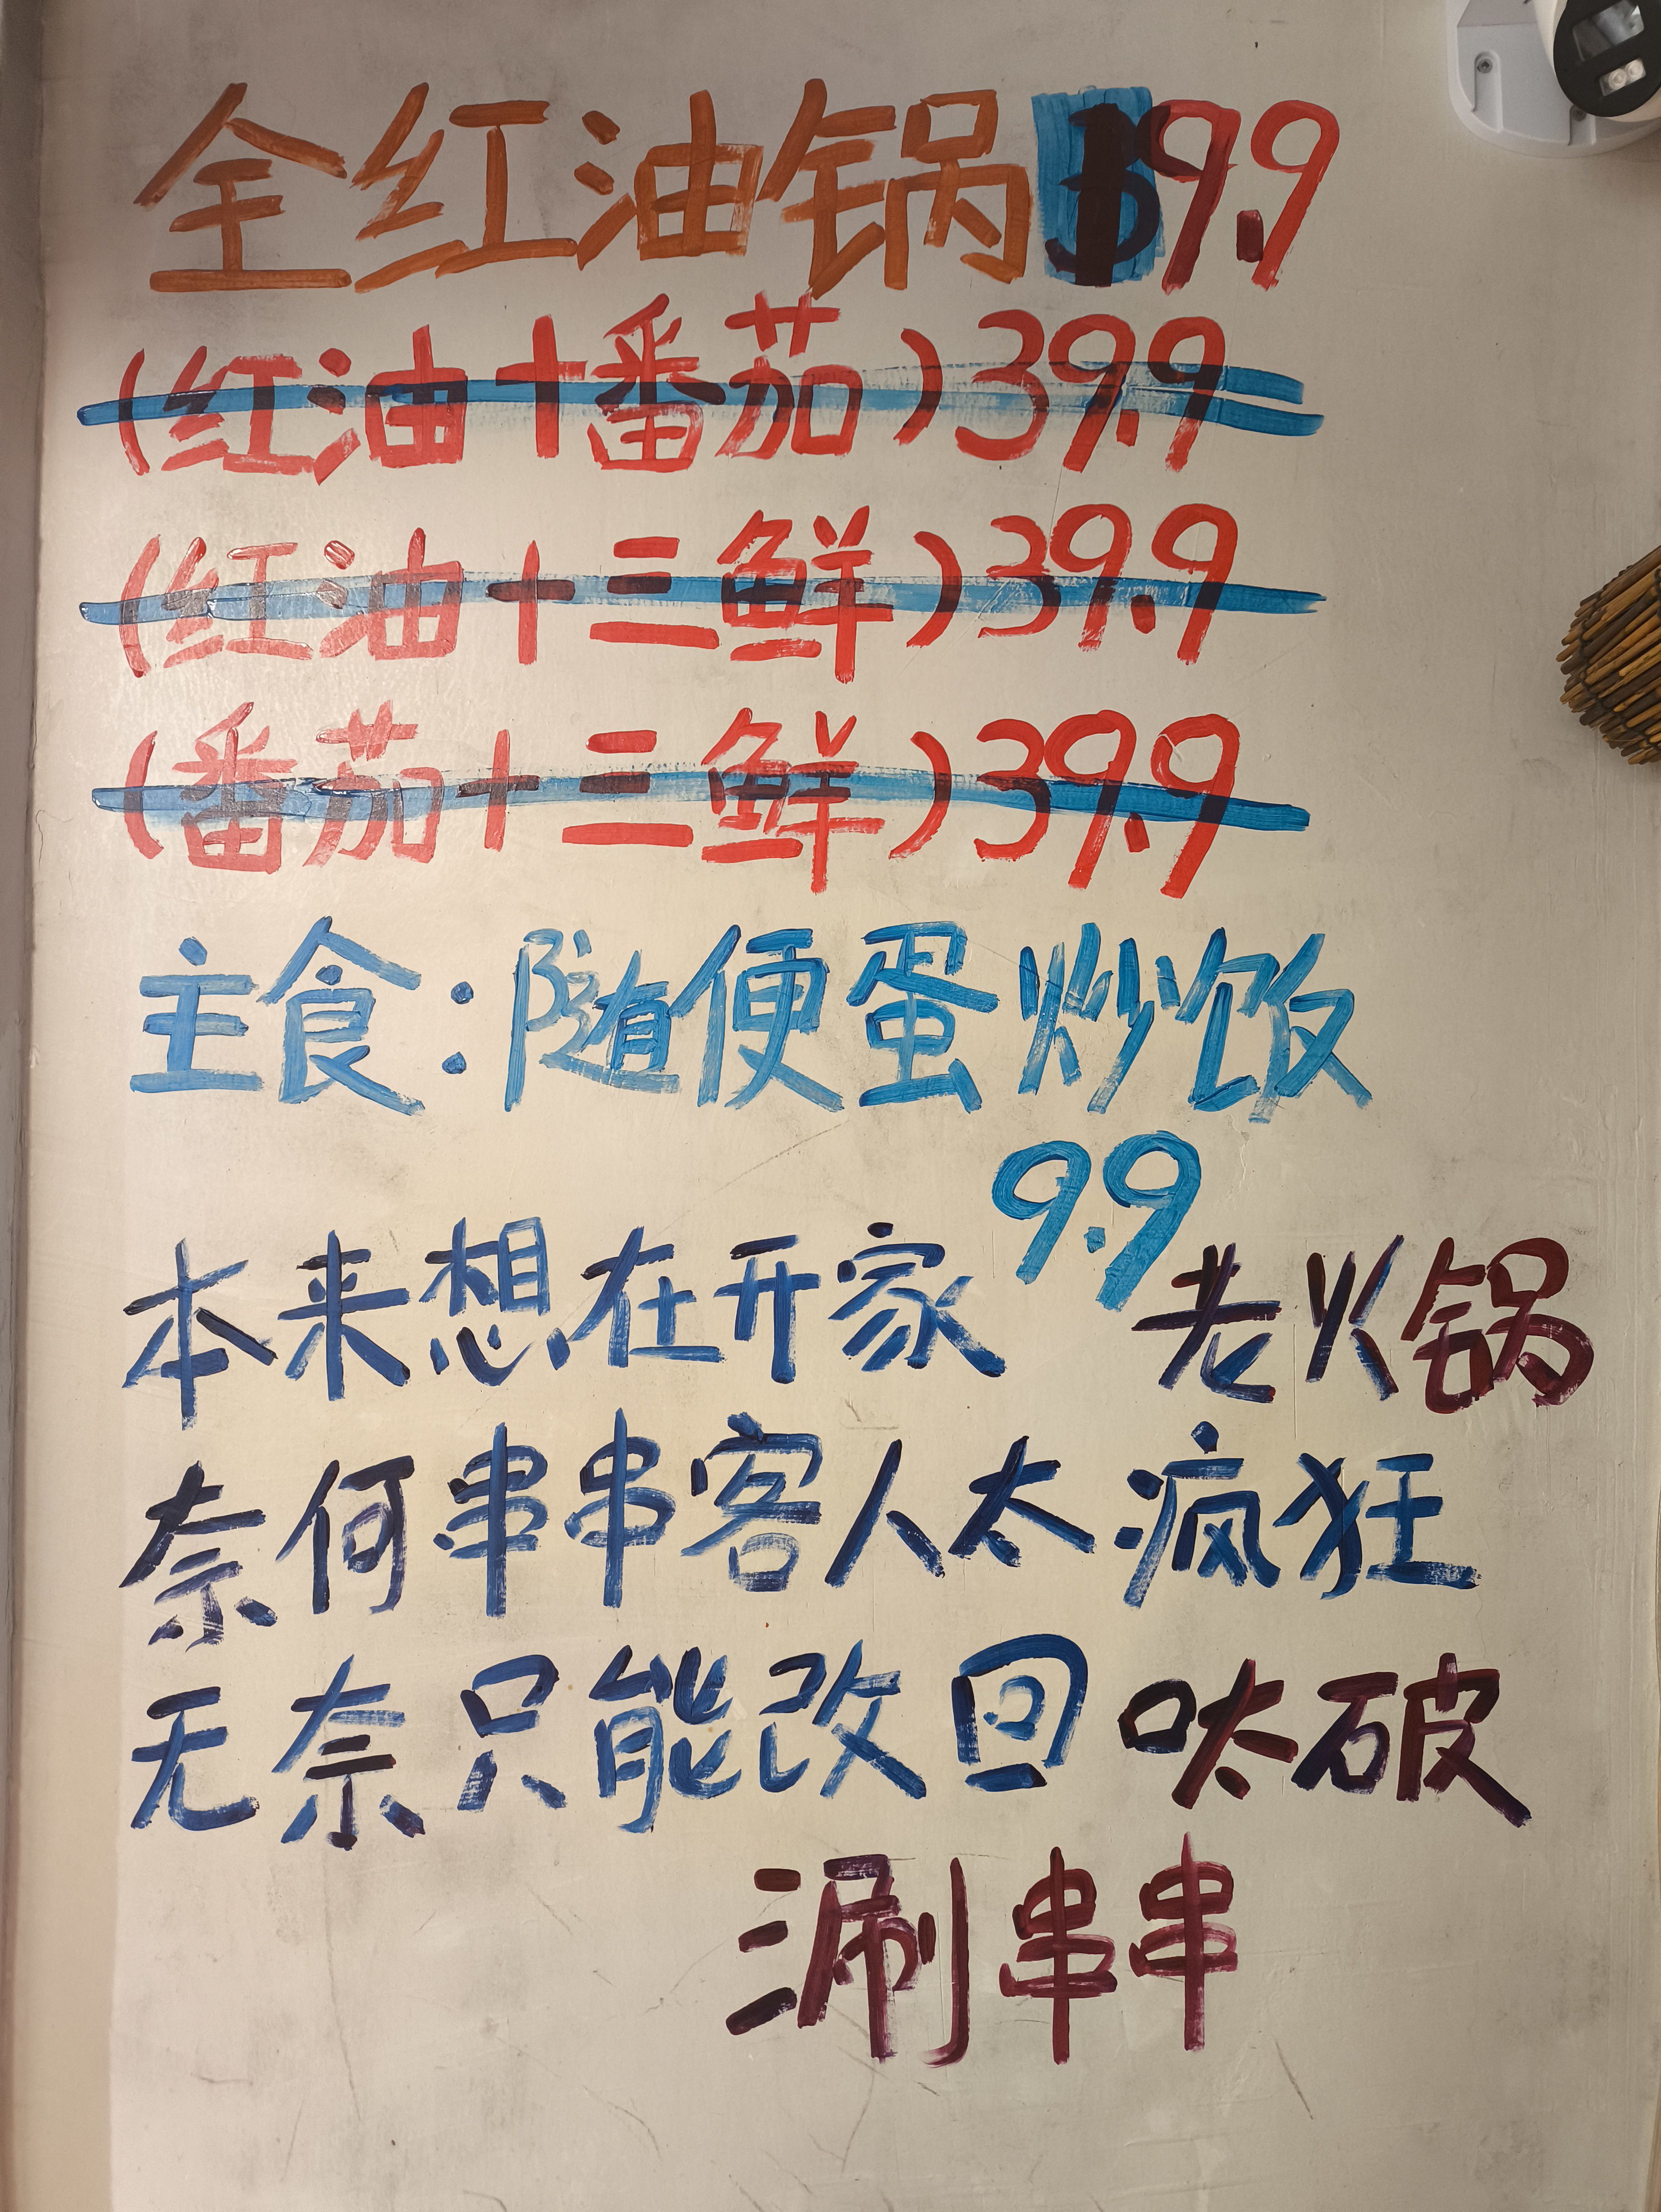 全红油锅19.9
(红油+番茄)39.9
(红油+三鲜)39.9
(番茄+三鲜)39.9
主食:随便蛋炒饭
9.9
本来想在开家 老火锅
奈何串串客人太疯狂
无奈只能改回 呔破
涮串串